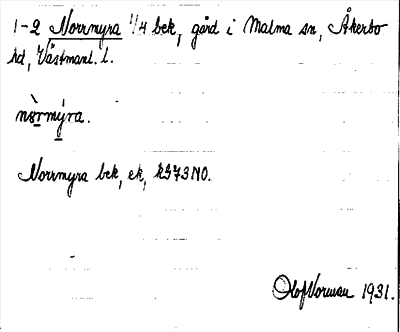 1-2 Norrmyra 1/4 bek, gård i Malma sn, Åkerbo
hd, Västmanl. l.
nòrmýra.
Norrmyra bek, ek, k573NO.
Olof Norman 1931.